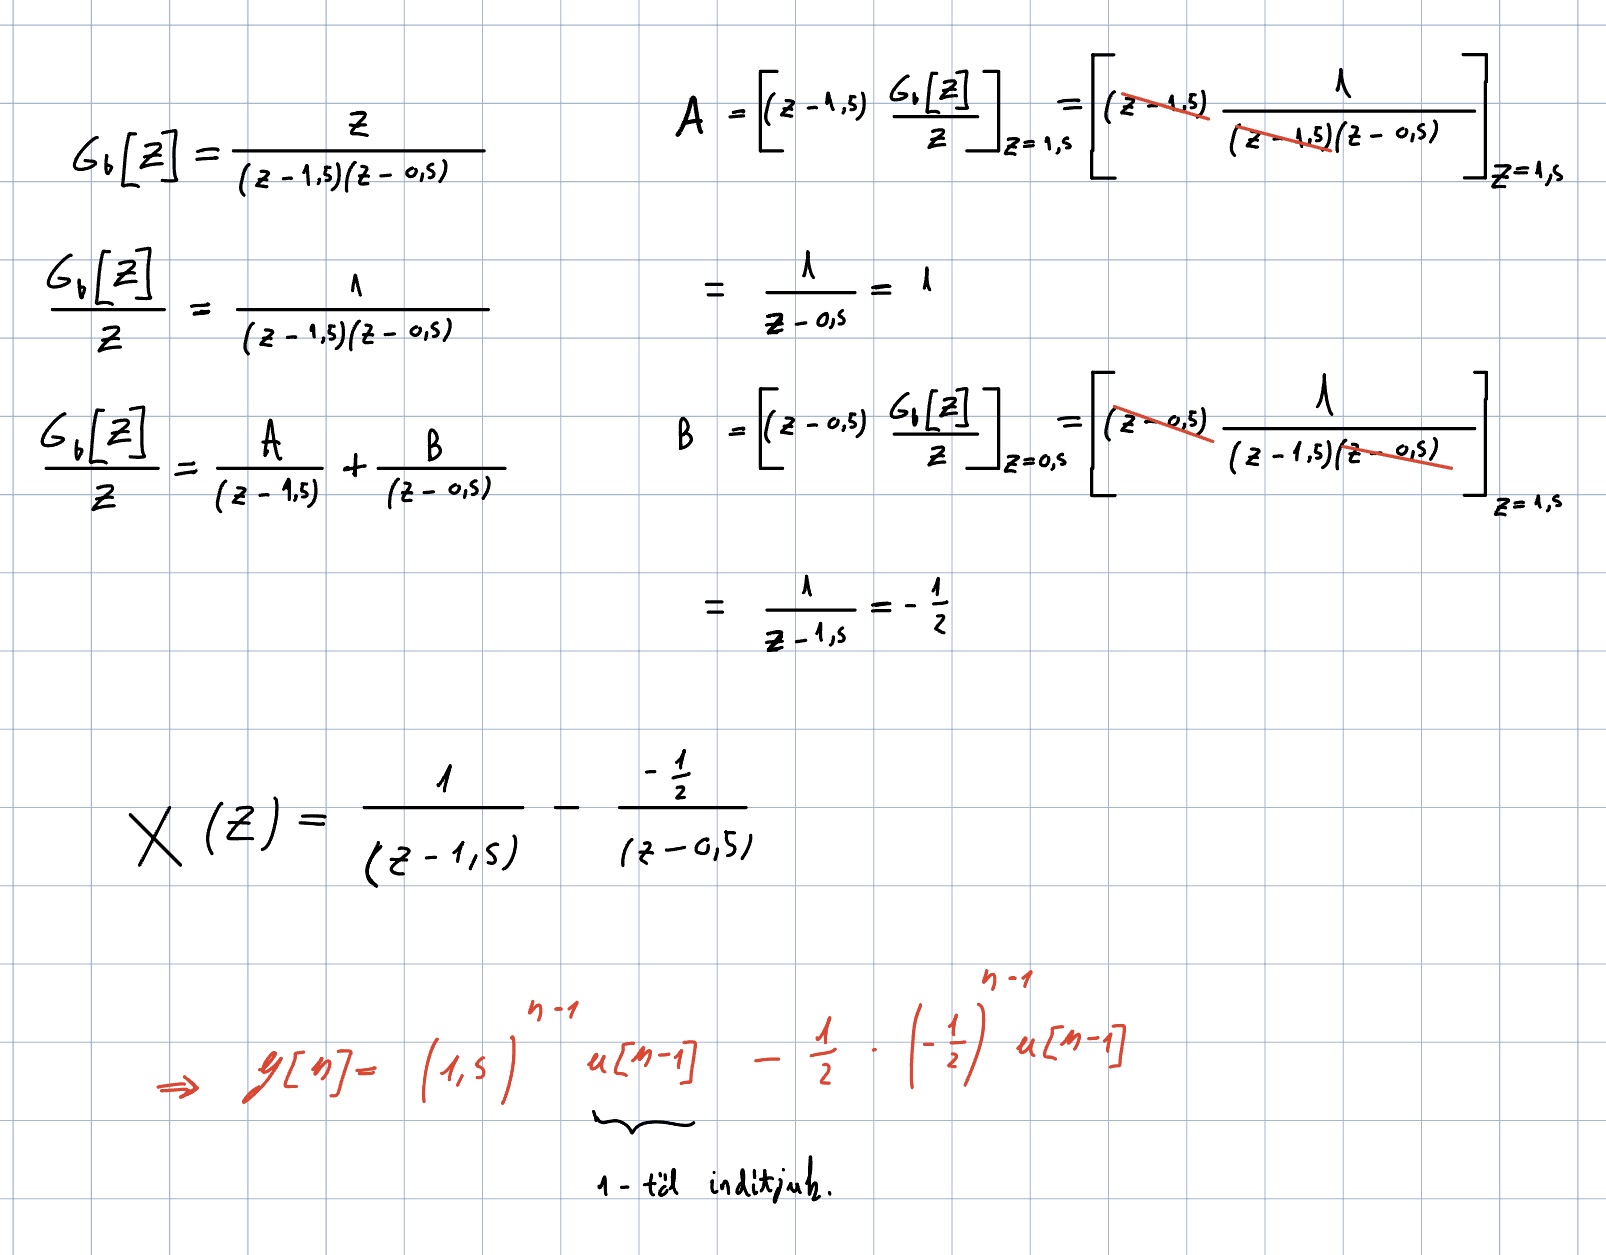 G_b[z] = z / ((z - 1,5)(z - 0,5))
G_b[z] / z = 1 / ((z - 1,5)(z - 0,5))
G_b[z] / z = A / (z - 1,5) + B / (z - 0,5)
A = [(z - 1,5) G_b[z] / z]_{z = 1,5} = [(z - 1,5) 1 / ((z - 1,5)(z - 0,5))]_{z = 1,5}
= 1 / (z - 0,5) = 1
B = [(z - 0,5) G_b[z] / z]_{z = 0,5} = [(z - 0,5) 1 / ((z - 1,5)(z - 0,5))]_{z = 1,5}
= 1 / (z - 1,5) = - 1/2
X(z) = 1 / (z - 1,5) - (- 1/2) / (z - 0,5)
⇒ y[n] = (1,5)^{n-1} u[n-1] - 1/2 · (- 1/2)^{n-1} u[n-1]
1-től indítjuk.